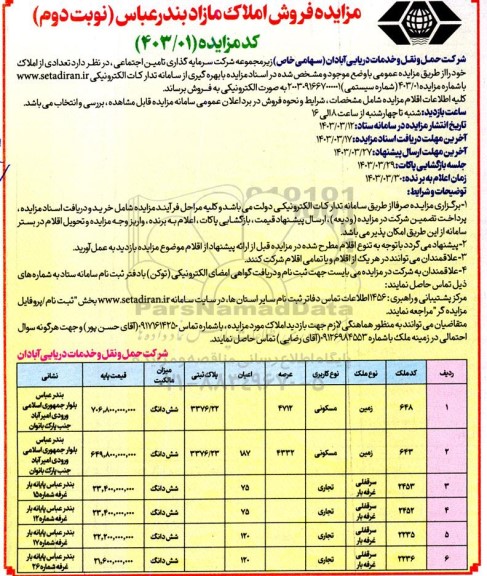 مزایده فروش املاک مازاد بندرعباس (نوبت دوم)
کد مزایده (۴۰۳/۰۱)
شرکت حمل و نقل و خدمات دریایی آبادان (سهامی خاص) زیرمجموعه شرکت سرمایه گذاری تامین اجتماعی، در نظر دارد تعدادی از املاک
خود را از طریق مزایده عمومی با وضع موجود و مشخص شده در اسناد مزایده با بهره گیری از سامانه تدارکات الکترونیکی www.setadiran.ir
با شماره مزایده ۴۰۳/۰۱ (شماره سیستمی ) به صورت الکترونیکی به فروش برساند.
کلیه اطلاعات اقلام مزایده شامل مشخصات، شرایط و نحوه فروش در برد اعلان عمومی سامانه مزایده قابل مشاهده، بررسی و انتخاب می باشد.
ساعت بازدید: شنبه تا چهارشنبه از ساعت ۸ الی ۱۶
تاریخ انتشار مزایده در سامانه ستاد: ۱۴۰۳/۰۳/۱۲
آخرین مهلت دریافت اسناد مزایده: ۱۴۰۳/۰۳/۱۷
آخرین مهلت ارسال پیشنهاد: ۱۴۰۳/۰۳/۲۷
جلسه بازگشایی پاکات: ۱۴۰۳/۰۳/۲۹
زمان اعلام به برنده: ۱۴۰۳/۰۳/۳۰
توضیحات و شرایط:
۱-برگزاری مزایده صرفا از طریق سامانه تدارکات الکترونیکی دولت می باشد و کلیه مراحل فرآیند مزایده شامل خرید و دریافت اسناد مزایده،
پرداخت تضمین شرکت در مزایده (ودیعه)، ارسال پیشنهاد قیمت، بازگشایی پاکات، اعلام به برنده، واریز وجه مزایده و تحویل اقلام در بستر
سامانه از این طریق امکان پذیر می باشد.
۲-پیشنهاد می گردد با توجه به تنوع اقلام مطرح شده در مزایده قبل از ارائه پیشنهاد از اقلام موضوع مزایده بازدید به عمل آورید.
۳-علاقمندان می توانند در هر یک از اقلام و یا تمامی اقلام شرکت کنند.
۴-علاقمندان به شرکت در مزایده می بایست جهت ثبت نام و دریافت گواهی امضای الکترونیکی (توکن) با دفتر ثبت نام سامانه ستاد به شماره های
ذیل تماس حاصل نمایند:
مرکز پشتیبانی و راهبری: ۱۴۵۶ اطلاعات تماس دفاتر ثبت نام سایر استان ها، در سایت سامانه www.setadiran.ir بخش "ثبت نام/پروفایل
مزایده گر" مراجعه نمایند.
متقاضیان می توانند به منظور هماهنگی لازم جهت بازدید املاک مورد مزایده، با شماره تماس ۰۹۱۷۷۶۱۴۲۵۰ (آقای حسن پور) و جهت هرگونه سوال
احتمالی در زمینه ملک با شماره ۰۹۱۲۶۹۸۴۵۵۳ (آقای رضایی) تماس حاصل نمایند.
شرکت حمل و نقل و خدمات دریایی آبادان
ردیف کد ملک نوع ملک نوع کاربری عرصه اعیان پلاک ثبتی میزان مالکیت قیمت پایه نشانی
۱ ۶۴۸ زمین مسکونی ۴۷۱۲ ۳۳۷۶/۲۲ شش دانگ ۷۰۶,۸۰۰,۰۰۰,۰۰۰ بندر عباس بلوار جمهوری اسلامی ورودی امیرآباد جنب پارک بانوان
۲ ۶۴۳ زمین مسکونی ۴۳۳۲ ۱۸۷ ۳۳۷۶/۲۳ شش دانگ ۶۴۹,۸۰۰,۰۰۰,۰۰۰ بندر عباس بلوار جمهوری اسلامی ورودی امیرآباد جنب پارک بانوان
۳ ۲۴۵۳ سرقفلی غرفه بار تجاری ۷۵ شش دانگ ۲۳,۴۰۰,۰۰۰,۰۰۰ بندر عباس پایانه بار غرفه شماره ۱۵
۴ ۲۴۵۲ سرقفلی غرفه بار تجاری ۷۵ شش دانگ ۲۳,۴۰۰,۰۰۰,۰۰۰ بندر عباس پایانه بار غرفه شماره ۱۲
۵ ۲۲۳۵ سرقفلی غرفه بار تجاری ۱۲۰ شش دانگ ۲۲,۲۰۰,۰۰۰,۰۰۰ بندر عباس پایانه بار غرفه شماره ۱۷
۶ ۲۲۳۶ سرقفلی غرفه بار تجاری ۱۲۰ شش دانگ ۲۱,۶۰۰,۰۰۰,۰۰۰ بندر عباس پایانه بار غرفه شماره ۲۶
ParsNamadData